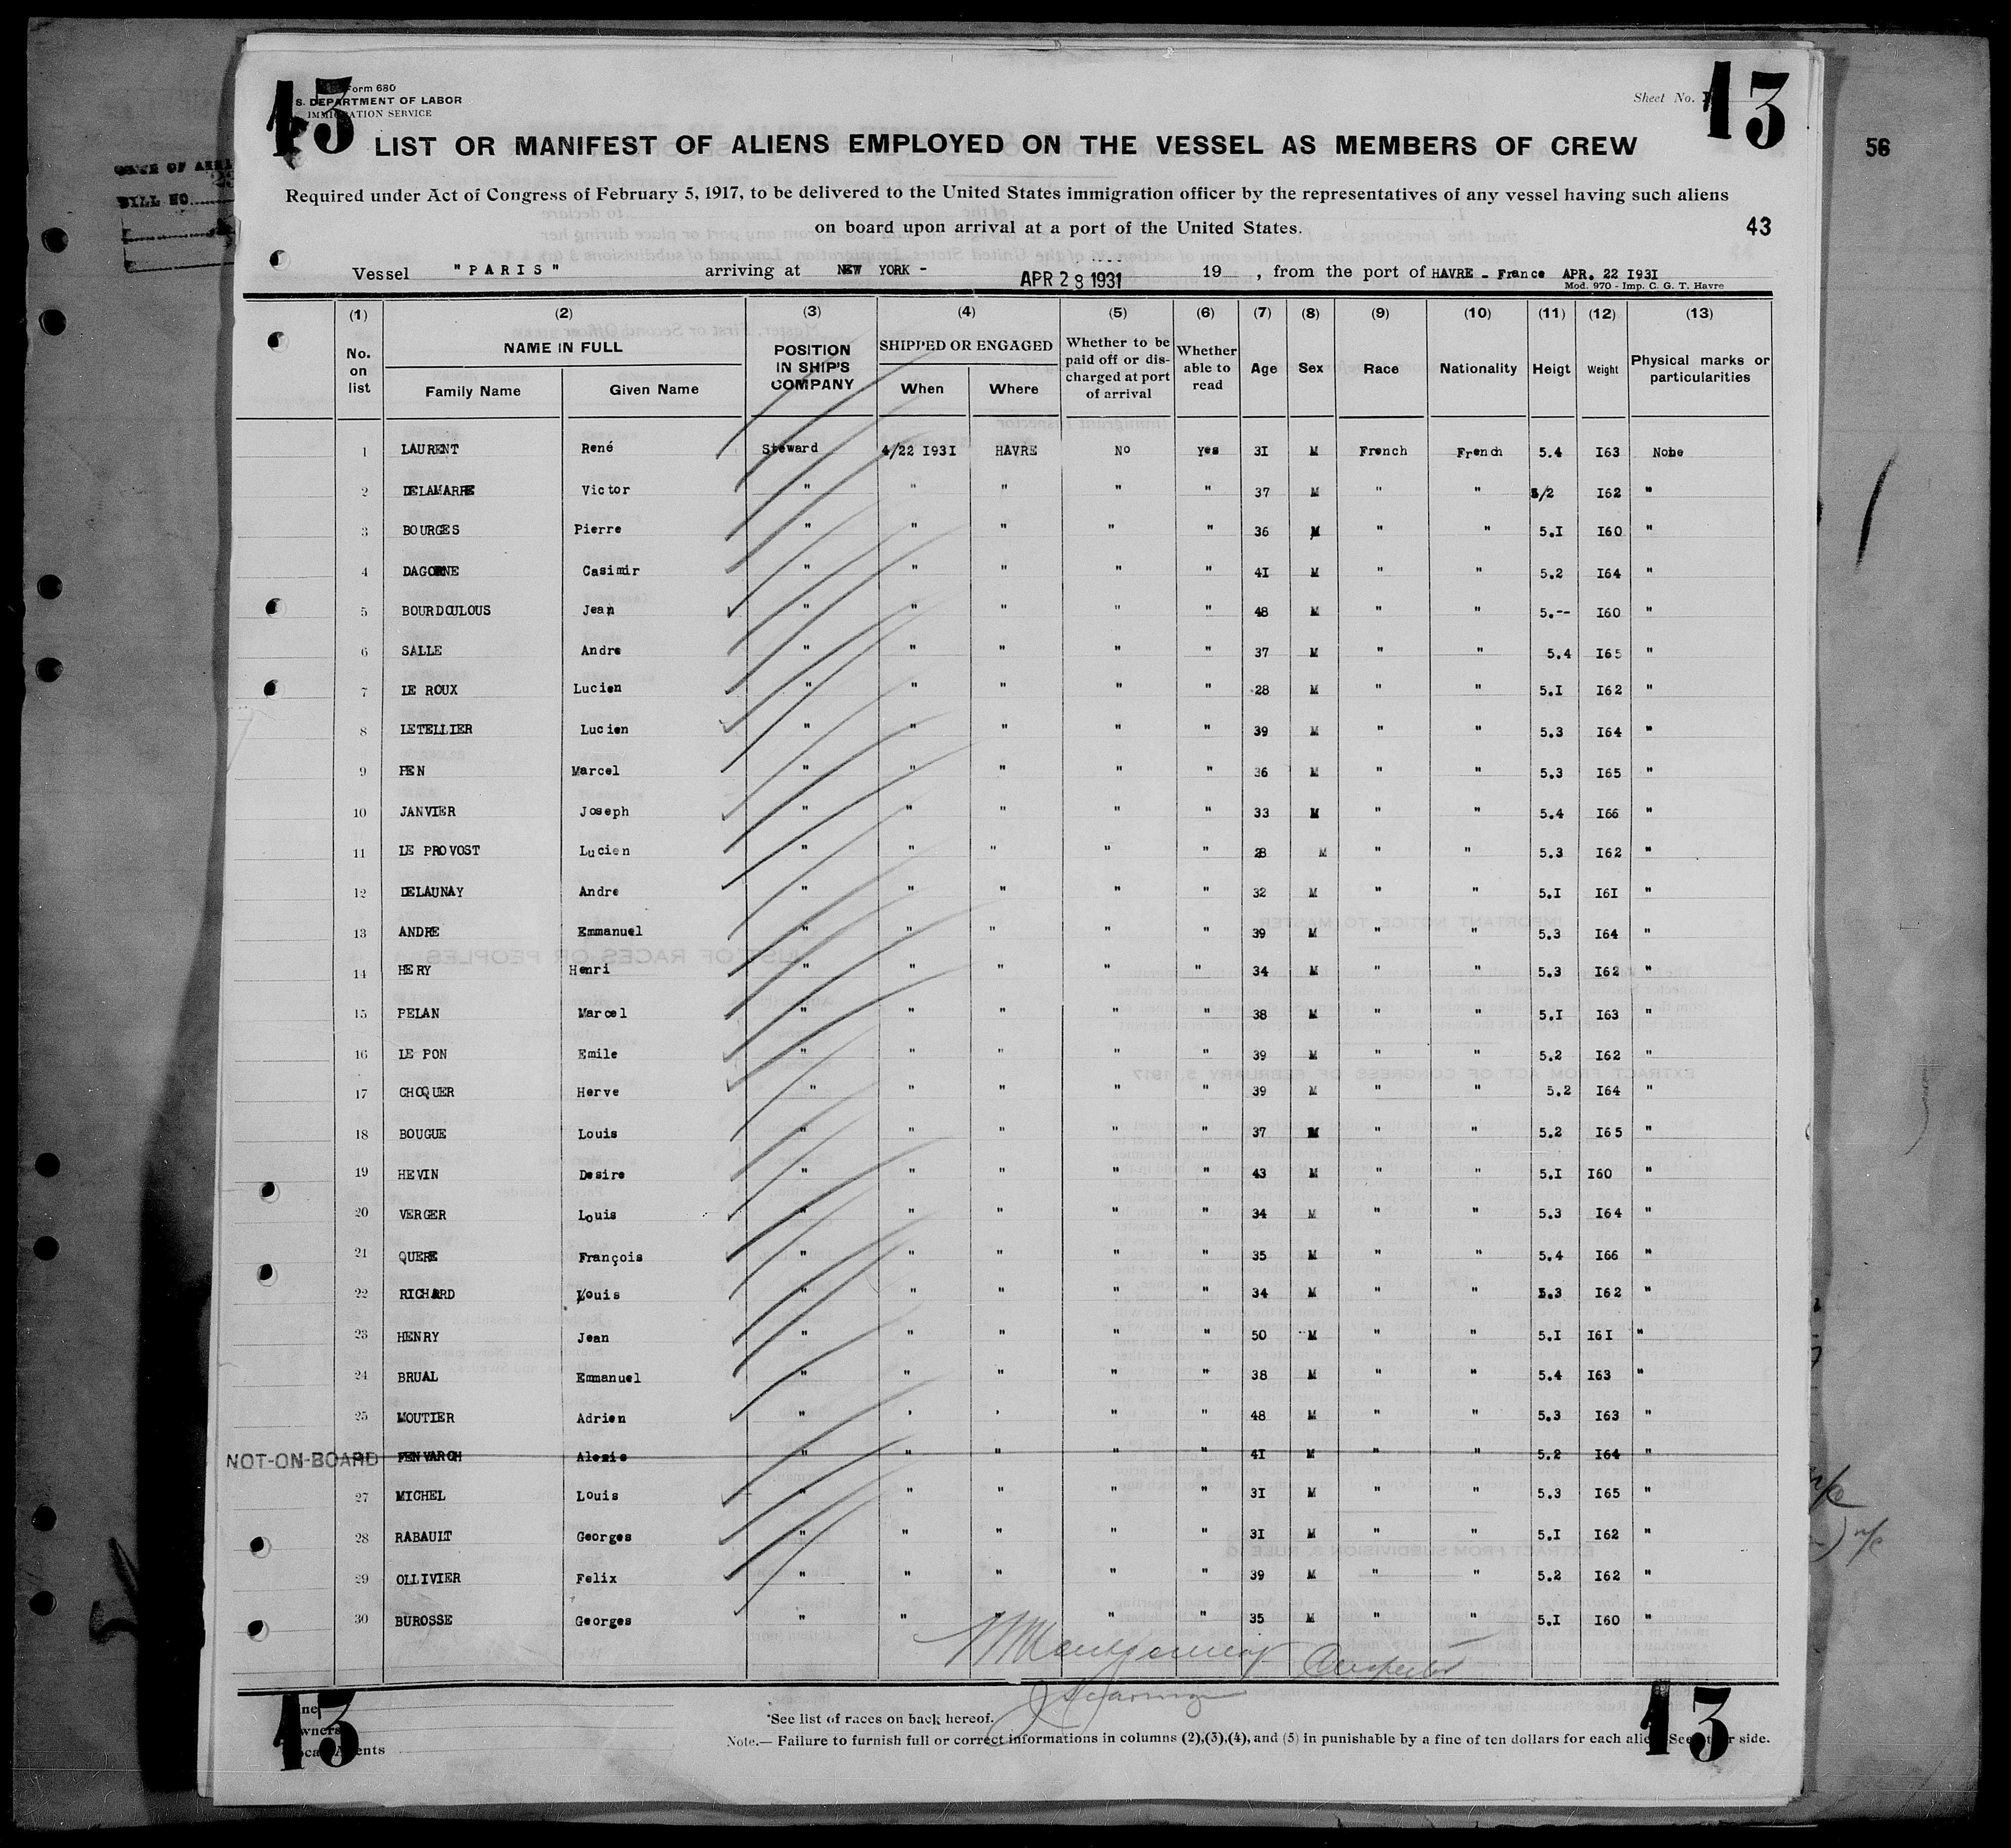 13
Form 680
S. DEPARTMENT OF LABOR
IMMIGRATION SERVICE
Sheet No.
13
56
LIST OR MANIFEST OF ALIENS EMPLOYED ON THE VESSEL AS MEMBERS OF CREW
Required under Act of Congress of February 5, 1917, to be delivered to the United States immigration officer by the representatives of any vessel having such aliens
on board upon arrival at a port of the United States.
43
BILL NO
Vessel "PARIS" arriving at NEW YORK - APR 28 1931 19 , from the port of HAVRE - France APR. 22 I93I
Mod. 970 - Imp. C. G. T. Havre
(1) (2) (3) (4) (5) (6) (7) (8) (9) (10) (11) (12) (13)
No. on list NAME IN FULL Family Name Given Name POSITION IN SHIP'S COMPANY SHIPPED OR ENGAGED When Where Whether to be paid off or discharged at port of arrival Whether able to read Age Sex Race Nationality Heigt Weight Physical marks or particularities
1 LAURENT René Steward 4/22 I93I HAVRE No Yes 3I M French French 5.4 I63 None
2 DELAMARRE Victor " " " " " 37 M " " 5/2 I62 "
3 BOURGES Pierre " " " " " 36 M " " 5.I I60 "
4 DAGORNE Casimir " " " " " 4I M " " 5.2 I64 "
5 BOURDOULOUS Jean " " " " " 48 M " " 5.-- I60 "
6 SALLE Andre " " " " " 37 M " " 5.4 I65 "
7 LE ROUX Lucien " " " " " 28 M " " 5.I I62 "
8 LETELLIER Lucien " " " " " 39 M " " 5.3 I64 "
9 PEN Marcel " " " " " 36 M " " 5.3 I65 "
10 JANVIER Joseph " " " " " 33 M " " 5.4 I66 "
11 LE PROVOST Lucien " " " " " 28 M " " 5.3 I62 "
12 DELAUNAY Andre " " " " " 32 M " " 5.I I6I "
13 ANDRE Emmanuel " " " " " 39 M " " 5.3 I64 "
14 HERY Henri " " " " " 34 M " " 5.3 I62 "
15 PELAN Marcel " " " " " 38 M " " 5.I I63 "
16 LE PON Emile " " " " " 39 M " " 5.2 I62 "
17 CHOQUER Herve " " " " " 39 M " " 5.2 I64 "
18 BOUGUE Louis " " " " " 37 M " " 5.2 I65 "
19 HEVIN Desire " " " " " 43 M " " 5.I I60 "
20 VERGER Louis " " " " " 34 M " " 5.3 I64 "
21 QUERE François " " " " " 35 M " " 5.4 I66 "
22 RICHARD Louis " " " " " 34 M " " 5.3 I62 "
23 HENRY Jean " " " " " 50 M " " 5.I I6I "
24 BRUAL Emmanuel " " " " " 38 M " " 5.4 I63 "
25 MOUTIER Adrien " ' ' " " 48 M " " 5.3 I63 "
NOT-ON-BOARD PENVARCH Alexis " " " " " 4I M " " 5.2 I64 "
27 MICHEL Louis " " " " " 3I M " " 5.3 I65 "
28 RABAULT Georges " " " " " 3I M " " 5.I I62 "
29 OLLIVIER Felix " " " " " 39 M " " 5.2 I62 "
30 BUROSSE Georges " " " " " 35 M " " 5.I I60 "
Montgomery Inspector
13
*See list of races on back hereof.
Note.— Failure to furnish full or correct informations in columns (2),(3),(4), and (5) in punishable by a fine of ten dollars for each alien See other side.
13